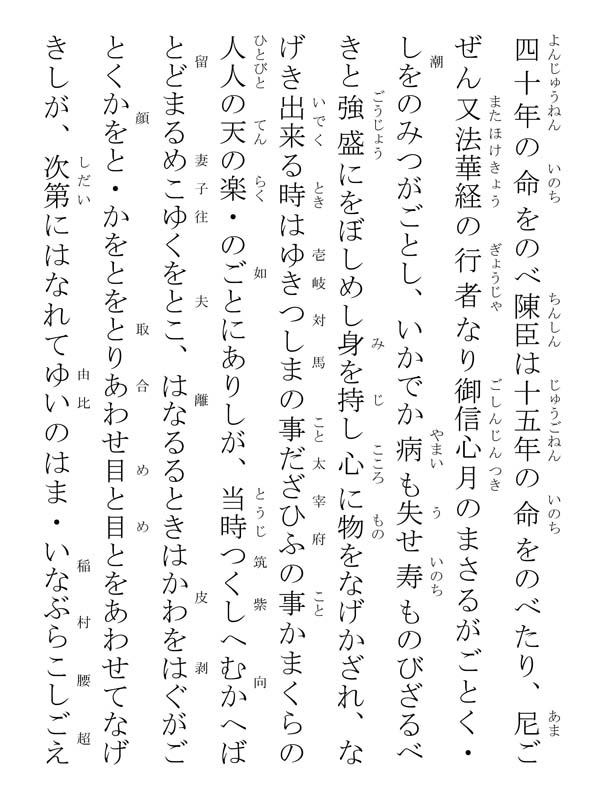 四十年の命をのべ陳臣は十五年の命をのべたり、尼ご
ぜん又法華経の行者なり御信心月のまさるがごとく・
しをのみつがごとし、いかでか病も失せ寿ものびざるべ
きと強盛にをぼしめし身を持し心に物をなげかざれ、な
げき出来る時はゆきつしまの事だざひふの事かまくらの
人人の天の楽・のごとにありしが、当時つくしへむかへば
とどまるめこゆくをとこ、はなるるときはかわをはぐがご
とくかをと・かをとをとりあわせ目と目とをあわせてなげ
きしが、次第にはなれてゆいのはま・いなぶらこしごえ